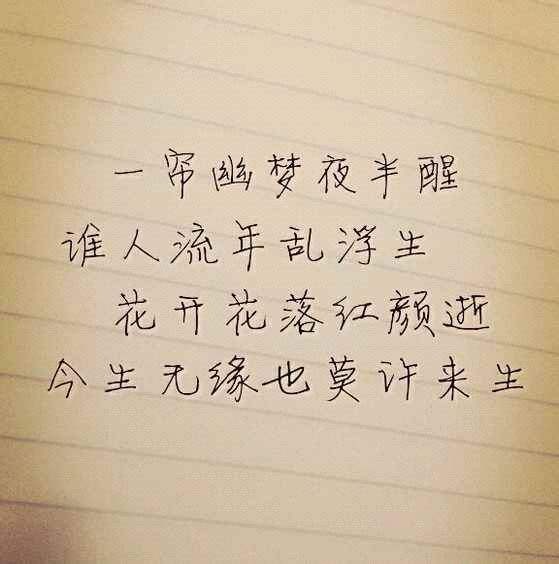 一帘幽梦夜半醒
谁人流年乱浮生
花开花落红颜逝
今生无缘也莫许来生